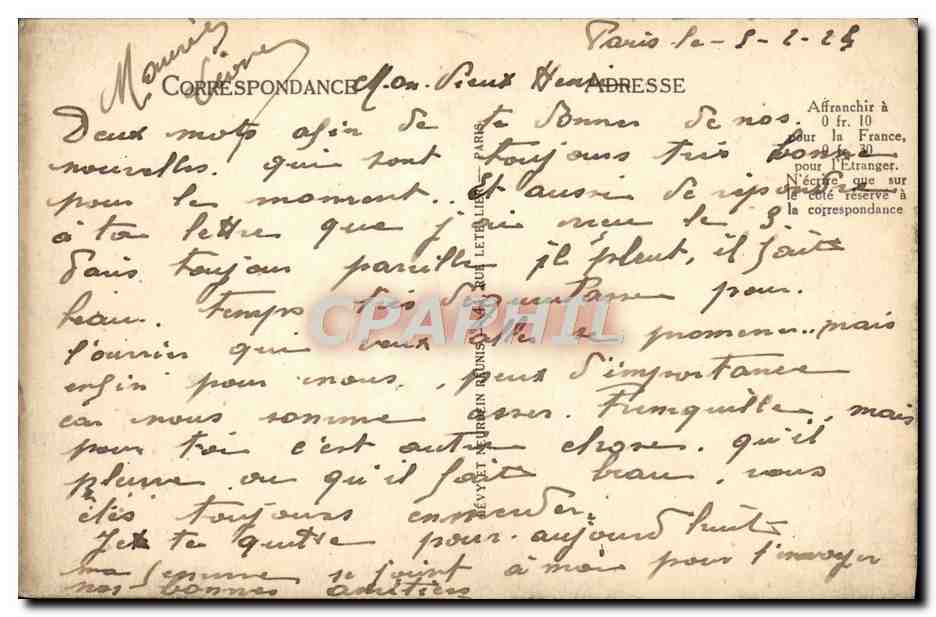 Paris le - 5-2-25
Maurice
CORRESPONDANCE
Mon vieux Henri
ADRESSE
Deux mots afin de te donner de nos.
nouvelles. qui sont toujours très bonne
pour le moment.. et aussi de répondre
à ta lettre que j'ai reçue le 3
Paris toujours pareille il pleut, il fait
beau. temps très dégouttasse pour.
l'ouvrier qui veux aller se promener.. mais
enfin pour nous, peux d'importance
car nous somme assez. tranquille, mais
pour toi c'est autre chose. qu'il
pleuve ou qu'il fait beau, vous
étés toujours emmerder.
Je te quitte pour aujourd'huit
ma femme se joint à moi pour t'envoyer
nos bonnes amitiés
Affranchir à
0 fr. 10
pour la France,
0 fr. 30
pour l'Etranger.
N'écrire que sur
le côté réservé à
la correspondance
LÉVY ET NEURDEIN RÉUNIS, 44, RUE LETELLIER — PARIS
CPARPHIL